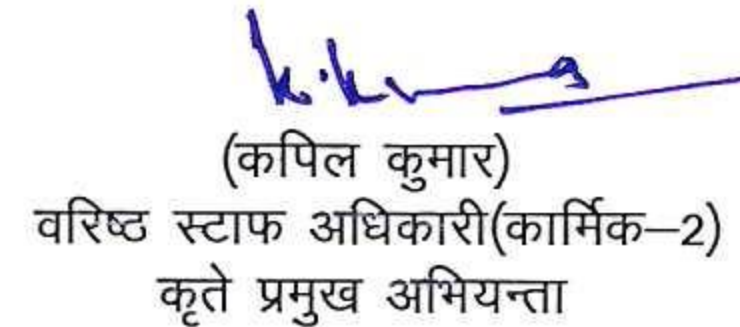 K. Kumar
(कपिल कुमार)
वरिष्ठ स्टाफ अधिकारी(कार्मिक–2)
कृते प्रमुख अभियन्ता